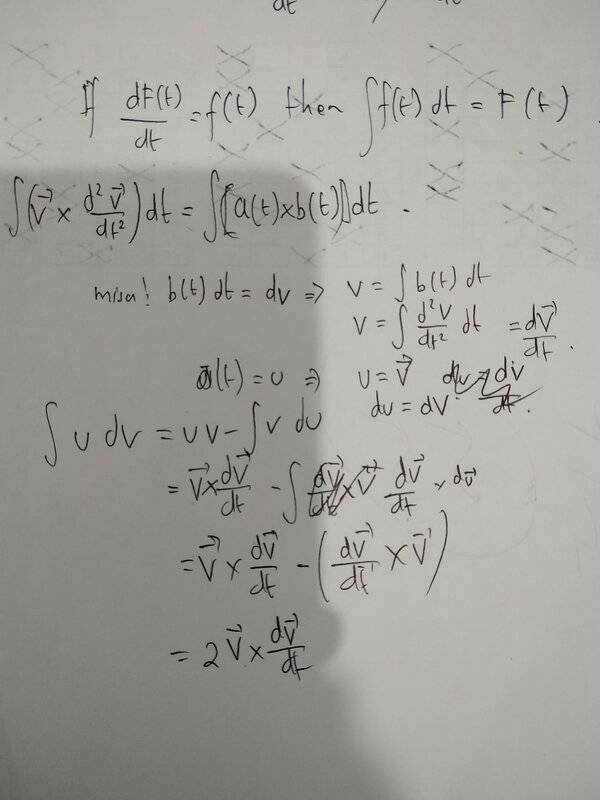 dt dt
If dF(t)/dt = f(t) then ∫f(t) dt = F(t).
∫(v⃗ × d²v⃗/dt²) dt = ∫[a(t)×b(t)]dt.
misal b(t) dt = dv ⇒ v = ∫ b(t) dt
v = ∫ d²v/dt² dt = dv⃗/dt.
a(t) = u ⇒ u = v⃗
du = dv
∫ u dv = uv - ∫ v du
= v⃗ × dv⃗/dt - ∫ dv⃗/dt × dv⃗
= v⃗ × dv⃗/dt - (dv⃗/dt × v⃗)
= 2 v⃗ × dv⃗/dt